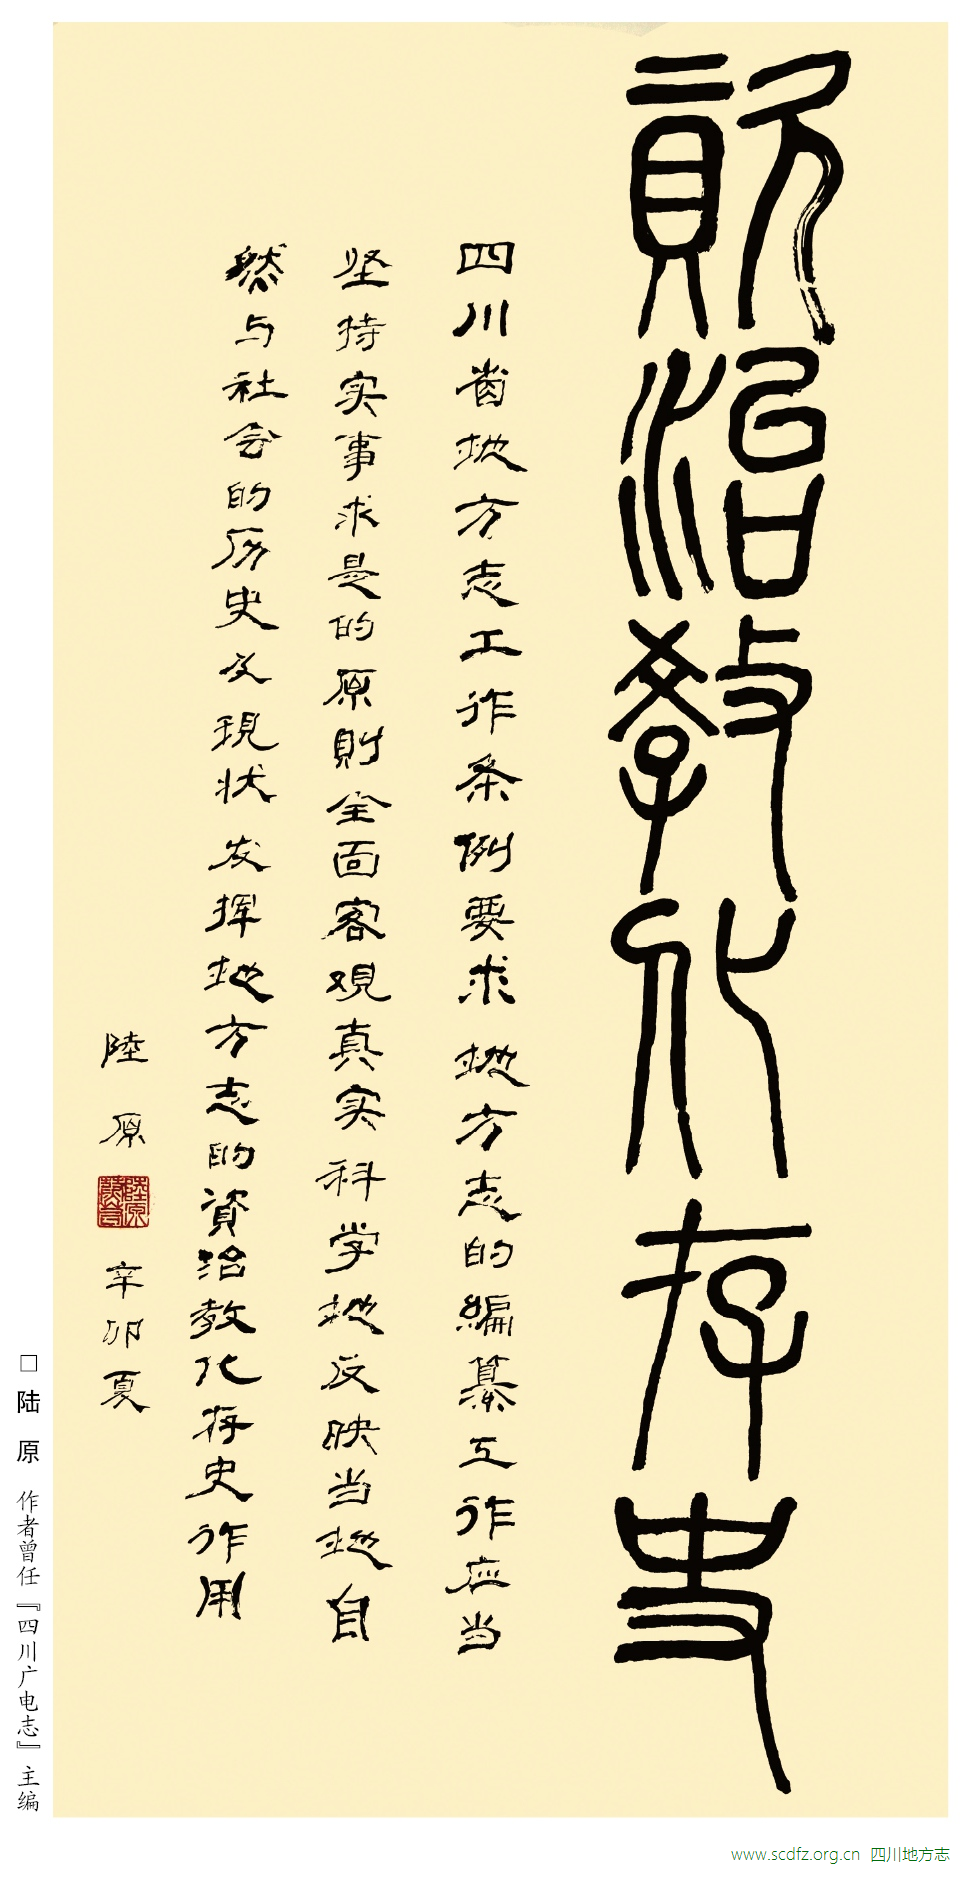 資治教化存史
四川省地方志工作条例要求地方志的编纂工作应当
坚持实事求是的原則全面客观真实科学地反映当地自
然与社会的历史及现状发挥地方志的資治教化存史作用
陸原
辛卯夏
□陆原 作者曾任『四川广电志』主编
www.scdfz.org.cn 四川地方志